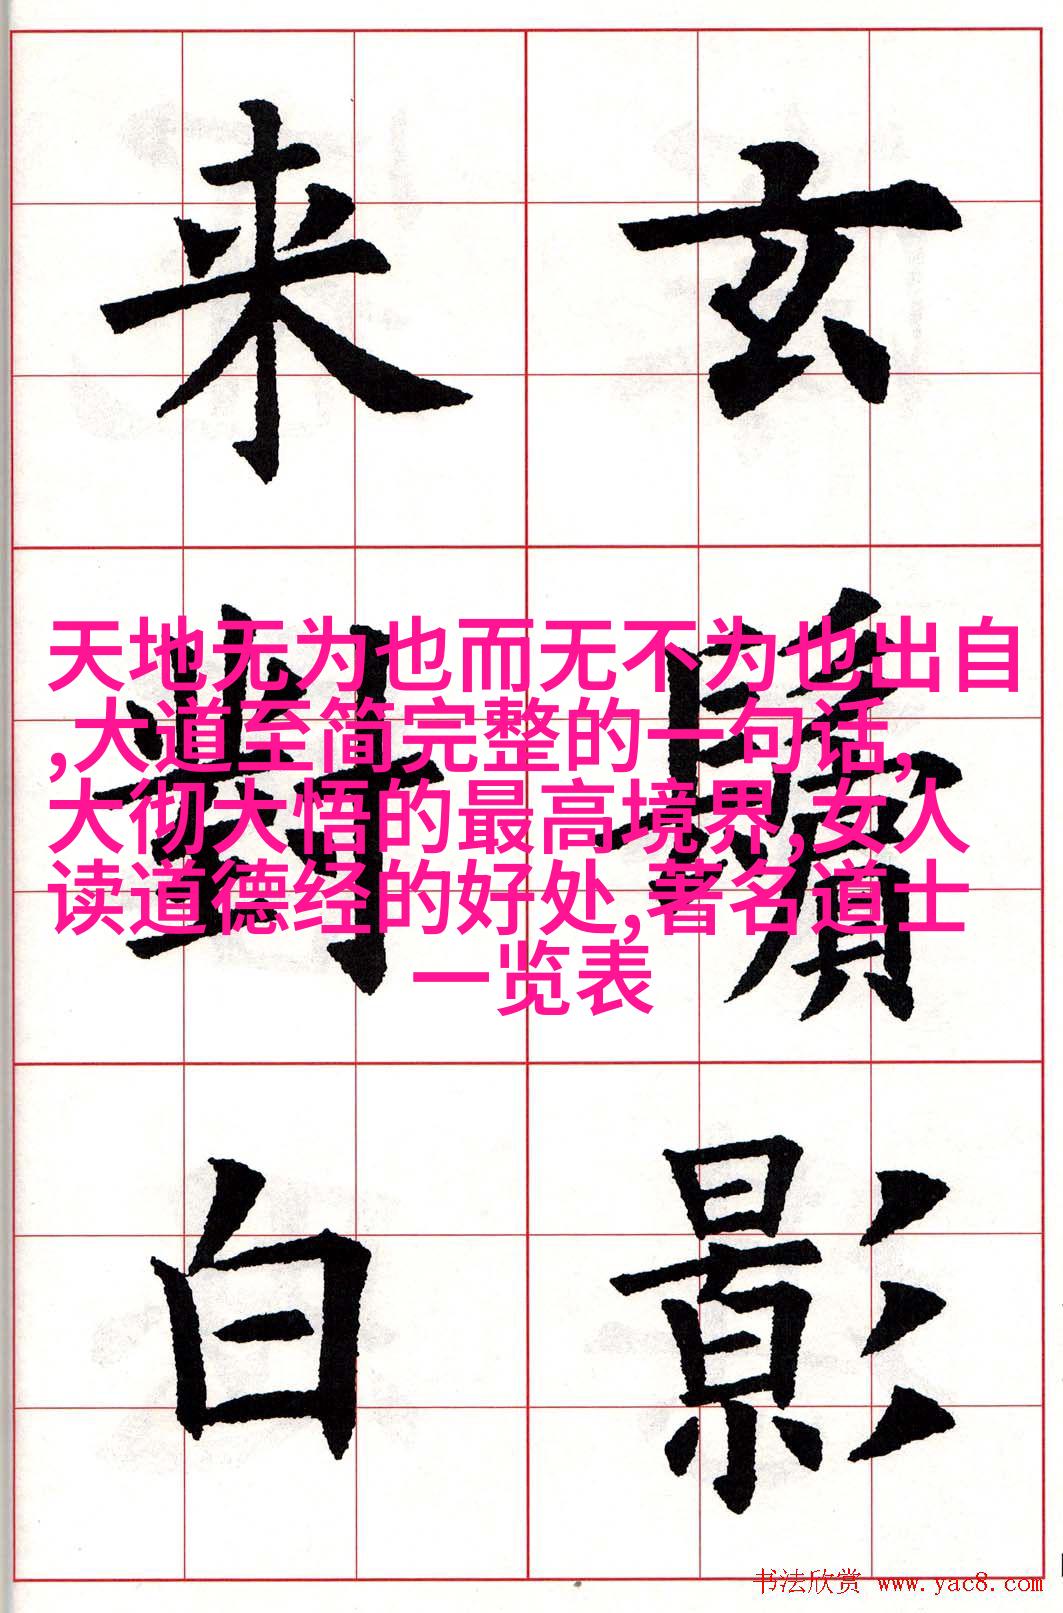 玄鬢影
来對白
天地无为也而无不为也出自
,大道至简完整的一句话,
大彻大悟的最高境界,女人
读道德经的好处,著名道士
一览表
书法欣赏 www.yac8.com